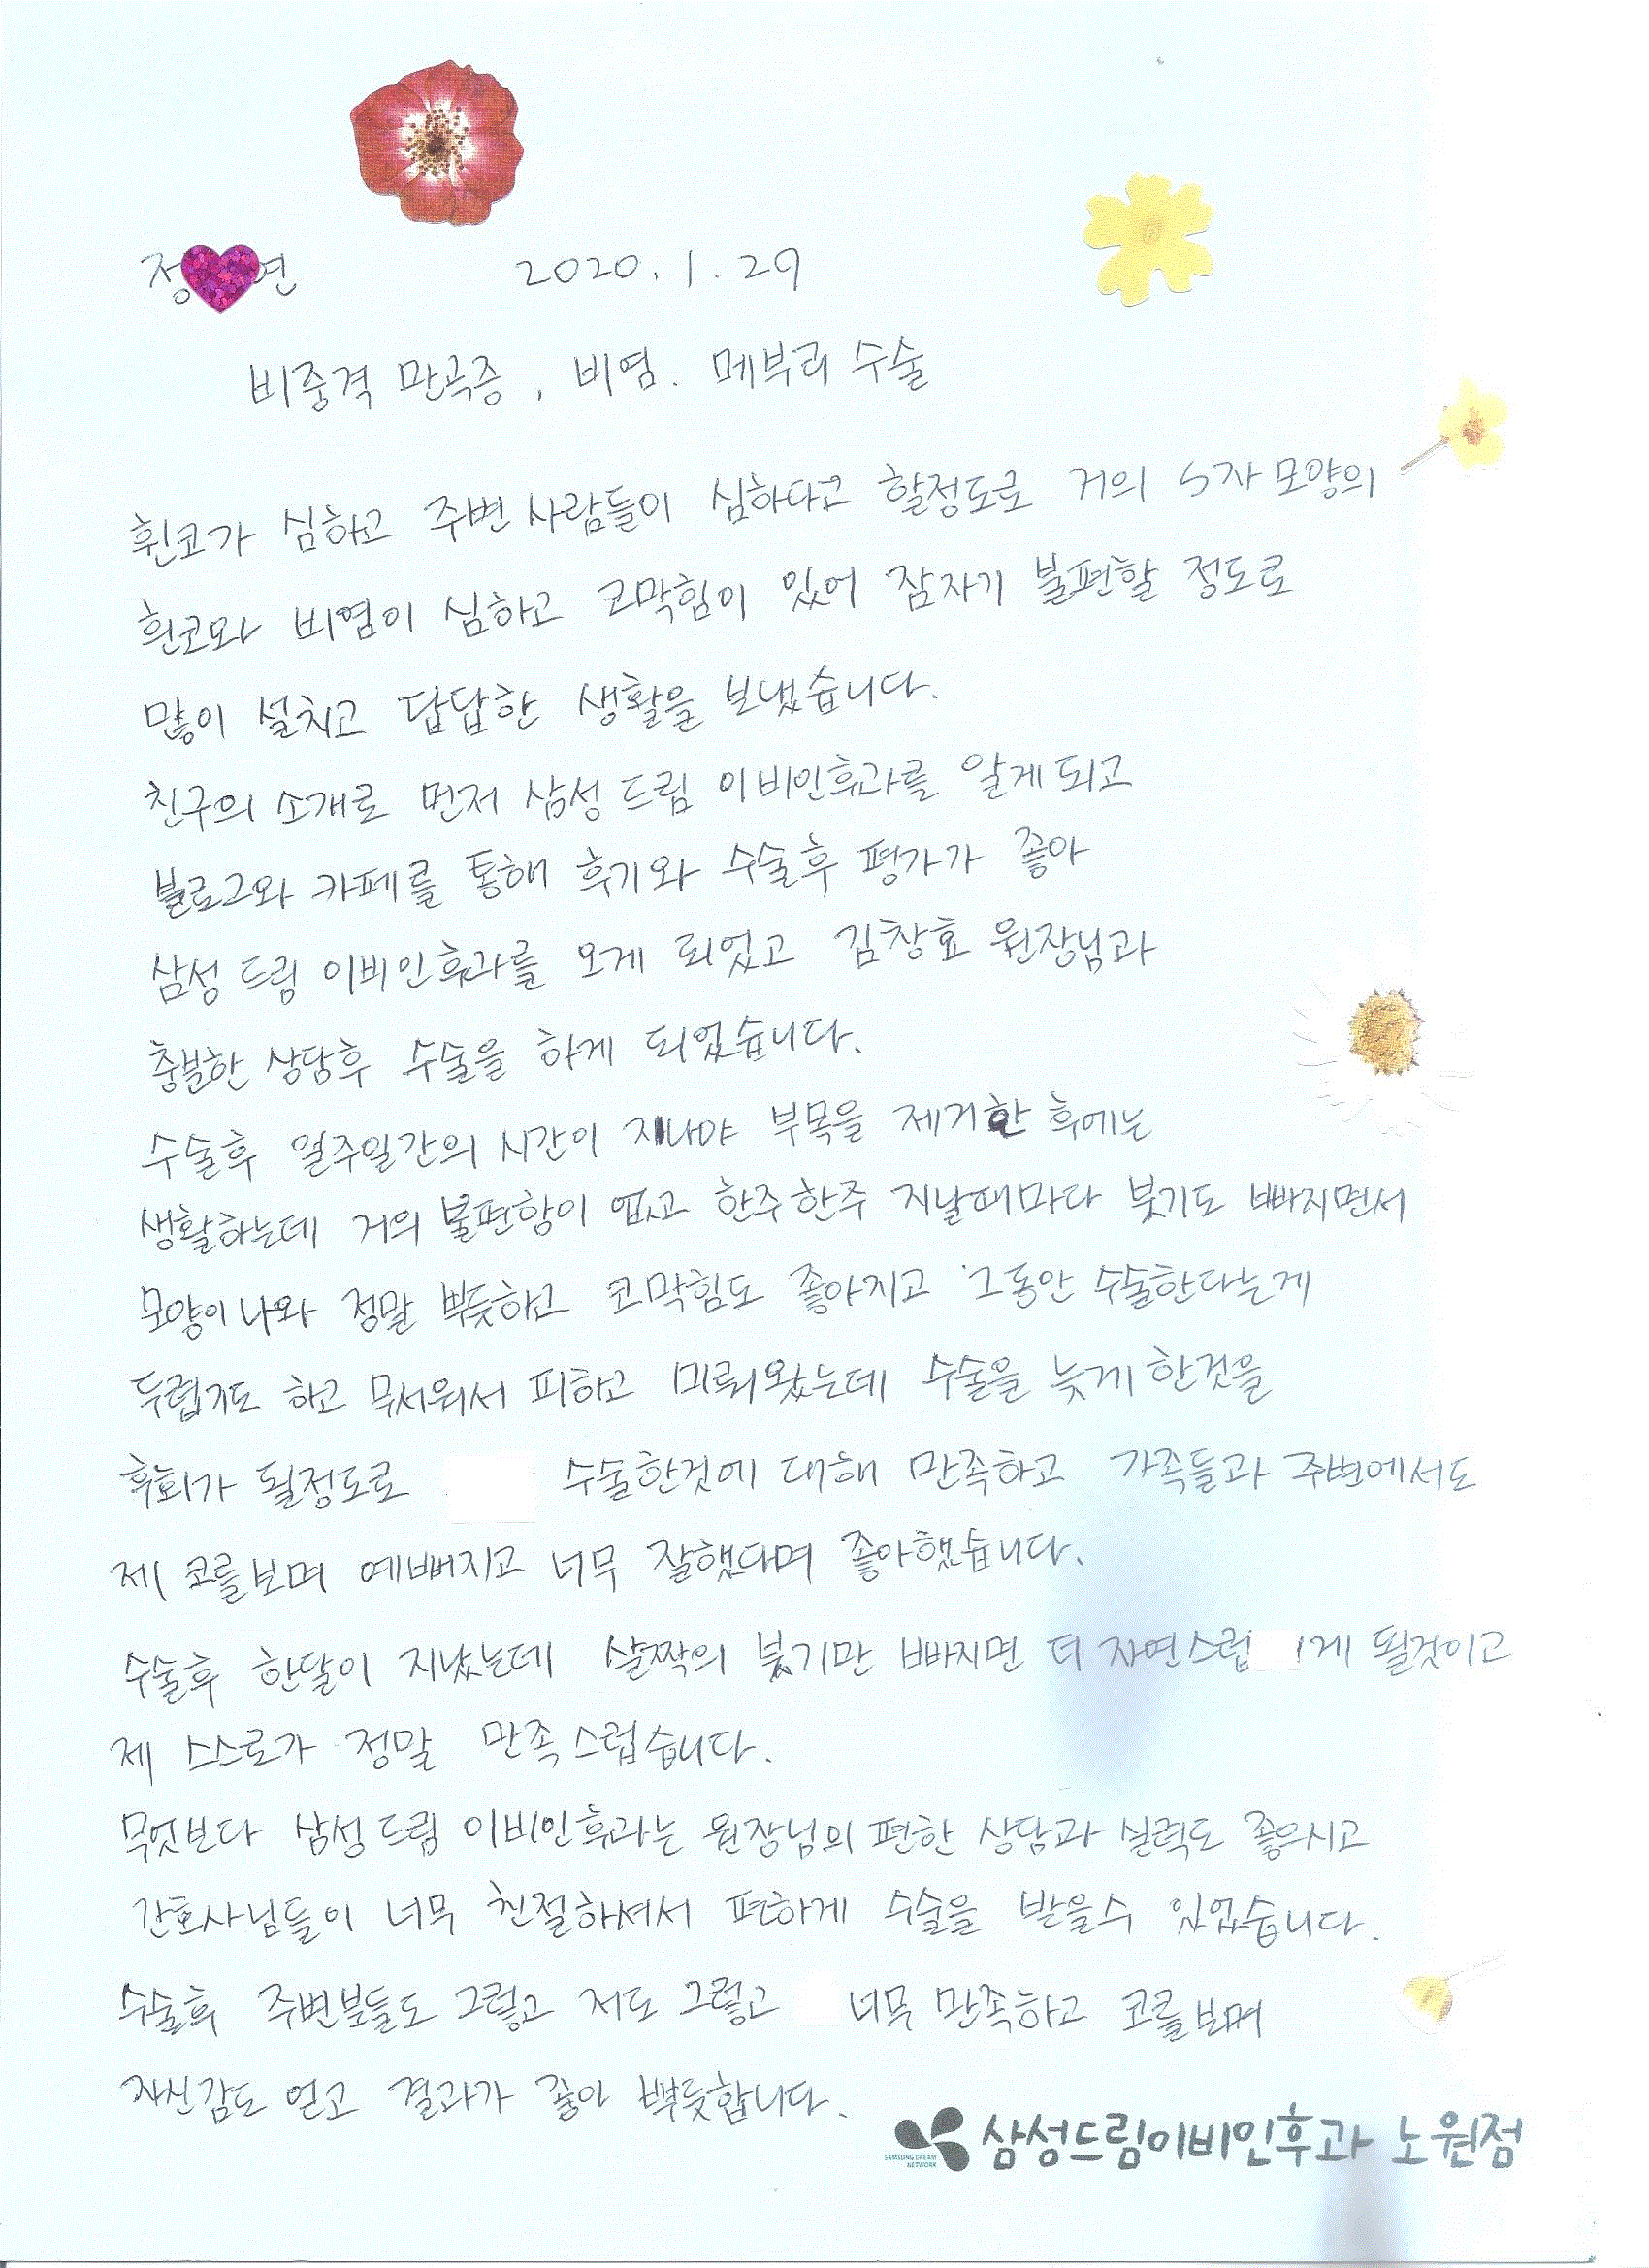 정 연 2020. 1. 29
비중격 만곡증, 비염. 메부리 수술
휜코가 심하고 주변 사람들이 심하다고 할정도로 거의 S자 모양의
흰코와 비염이 심하고 코막힘이 있어 잠자기 불편할 정도로
많이 설치고 답답한 생활을 보냈습니다.
친구의 소개로 먼저 삼성 드림 이비인후과를 알게되고
블로그와 카페를 통해 후기와 수술후 평가가 좋아
삼성 드림 이비인후과를 오게 되었고 김창효 원장님과
충분한 상담후 수술을 하게 되었습니다.
수술후 일주일간의 시간이 지나야 부목을 제거한 후에는
생활하는데 거의 불편항이 없고 한주한주 지날때마다 붓기도 빠지면서
모양이나와 정말 뿌듯하고 코막힘도 좋아지고 그동안 수술한다는게
두렵기도 하고 무서워서 피하고 미뤄왔는데 수술을 늦게한것을
후회가 될정도로 수술한것에 대해 만족하고 가족들과 주변에서도
제 코를보며 예뻐지고 너무 잘했다며 좋아했습니다.
수술후 한달이 지났는데 살짝의 붓기만 빠지면 더 자연스럽 게 될것이고
제 스스로가 정말 만족스럽습니다.
무엇보다 삼성드림 이비인후과는 원장님의 편한 상담과 실력도 좋으시고
간호사님들이 너무 친절하셔서 편하게 수술을 받을수 있었습니다.
수술후 주변분들도 그렇고 저도 그렇고 너무 만족하고 코를보며
자신감도 얻고 결과가 좋아 뿌듯합니다.
SAMSUNG DREAM NETWORK 삼성드림이비인후과 노원점